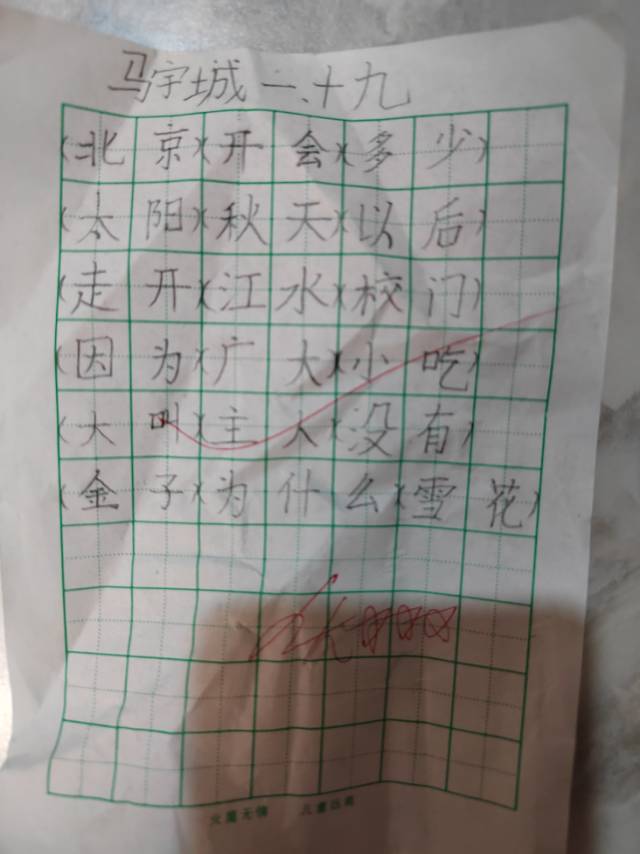 马宇城 一、十九
(北京)(开会)(多少)
(太阳)(秋天)(以后)
(走开)(江水)(校门)
(因为)(广大)(小吃)
(大叫)(主人)(没有)
(金子)(为什么)(雪花)